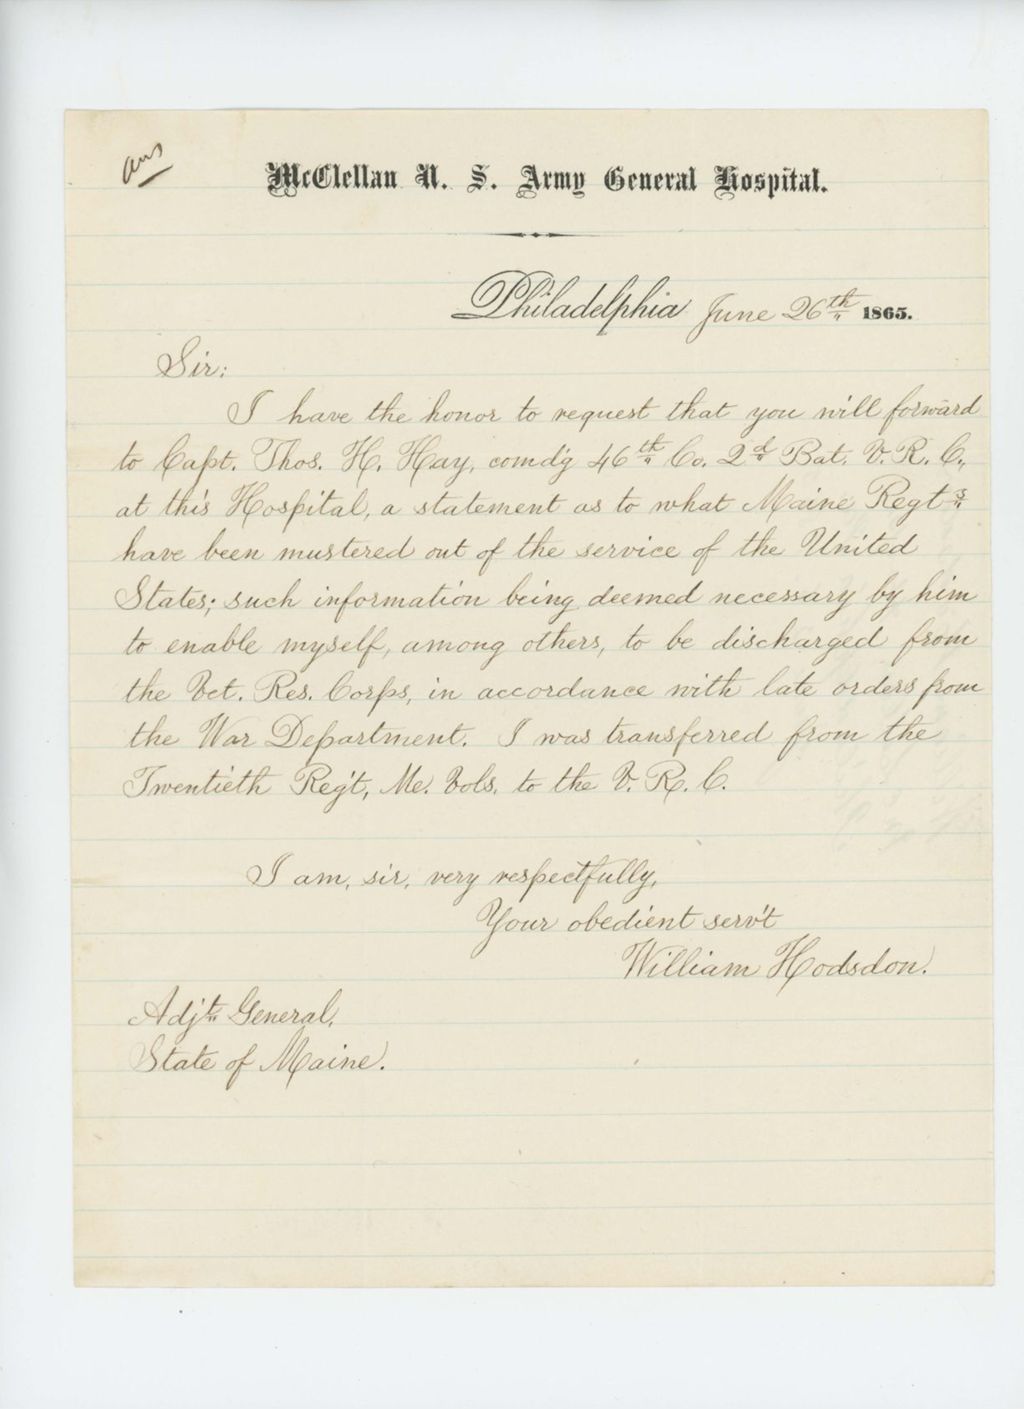 ans
McClellan U. S. Army General Hospital.
Philadelphia June 26th 1865.
Sir:
I have the honor to request that you will forward
to Capt. Thos. H. Hay, comd'g 46th Co. 2d Bat. V. R. C.,
at this Hospital, a statement as to what Maine Regts
have been mustered out of the service of the United
States; such information being deemed necessary by him
to enable myself, among others, to be discharged from
the Vet. Res. Corps, in accordance with late orders from
the War Department. I was transferred from the
Twentieth Reg't, Me. Vols. to the V. R. C.
I am, sir, very respectfully,
Your obedient serv't
William Hodsdon.
Adjt. General,
State of Maine.